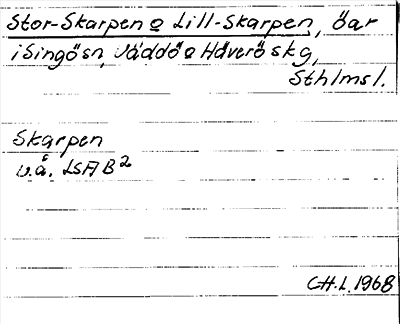 Stor-Skarpen o Lill-Skarpen, öar
i Singö sn, Väddö o Häverö skg,
Sthlms l.
Skarpen
u.å. LSA B2
C-H.L. 1968